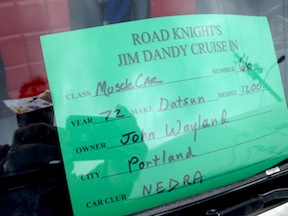 ROAD KNIGHT'S
JIM DANDY CRUISE IN
NUMBER 66
CLASS MuscleCAR
YEAR 72 MAKE Datsun MODEL 1200
OWNER John Wayland
CITY Portland
CAR CLUB NEDRA